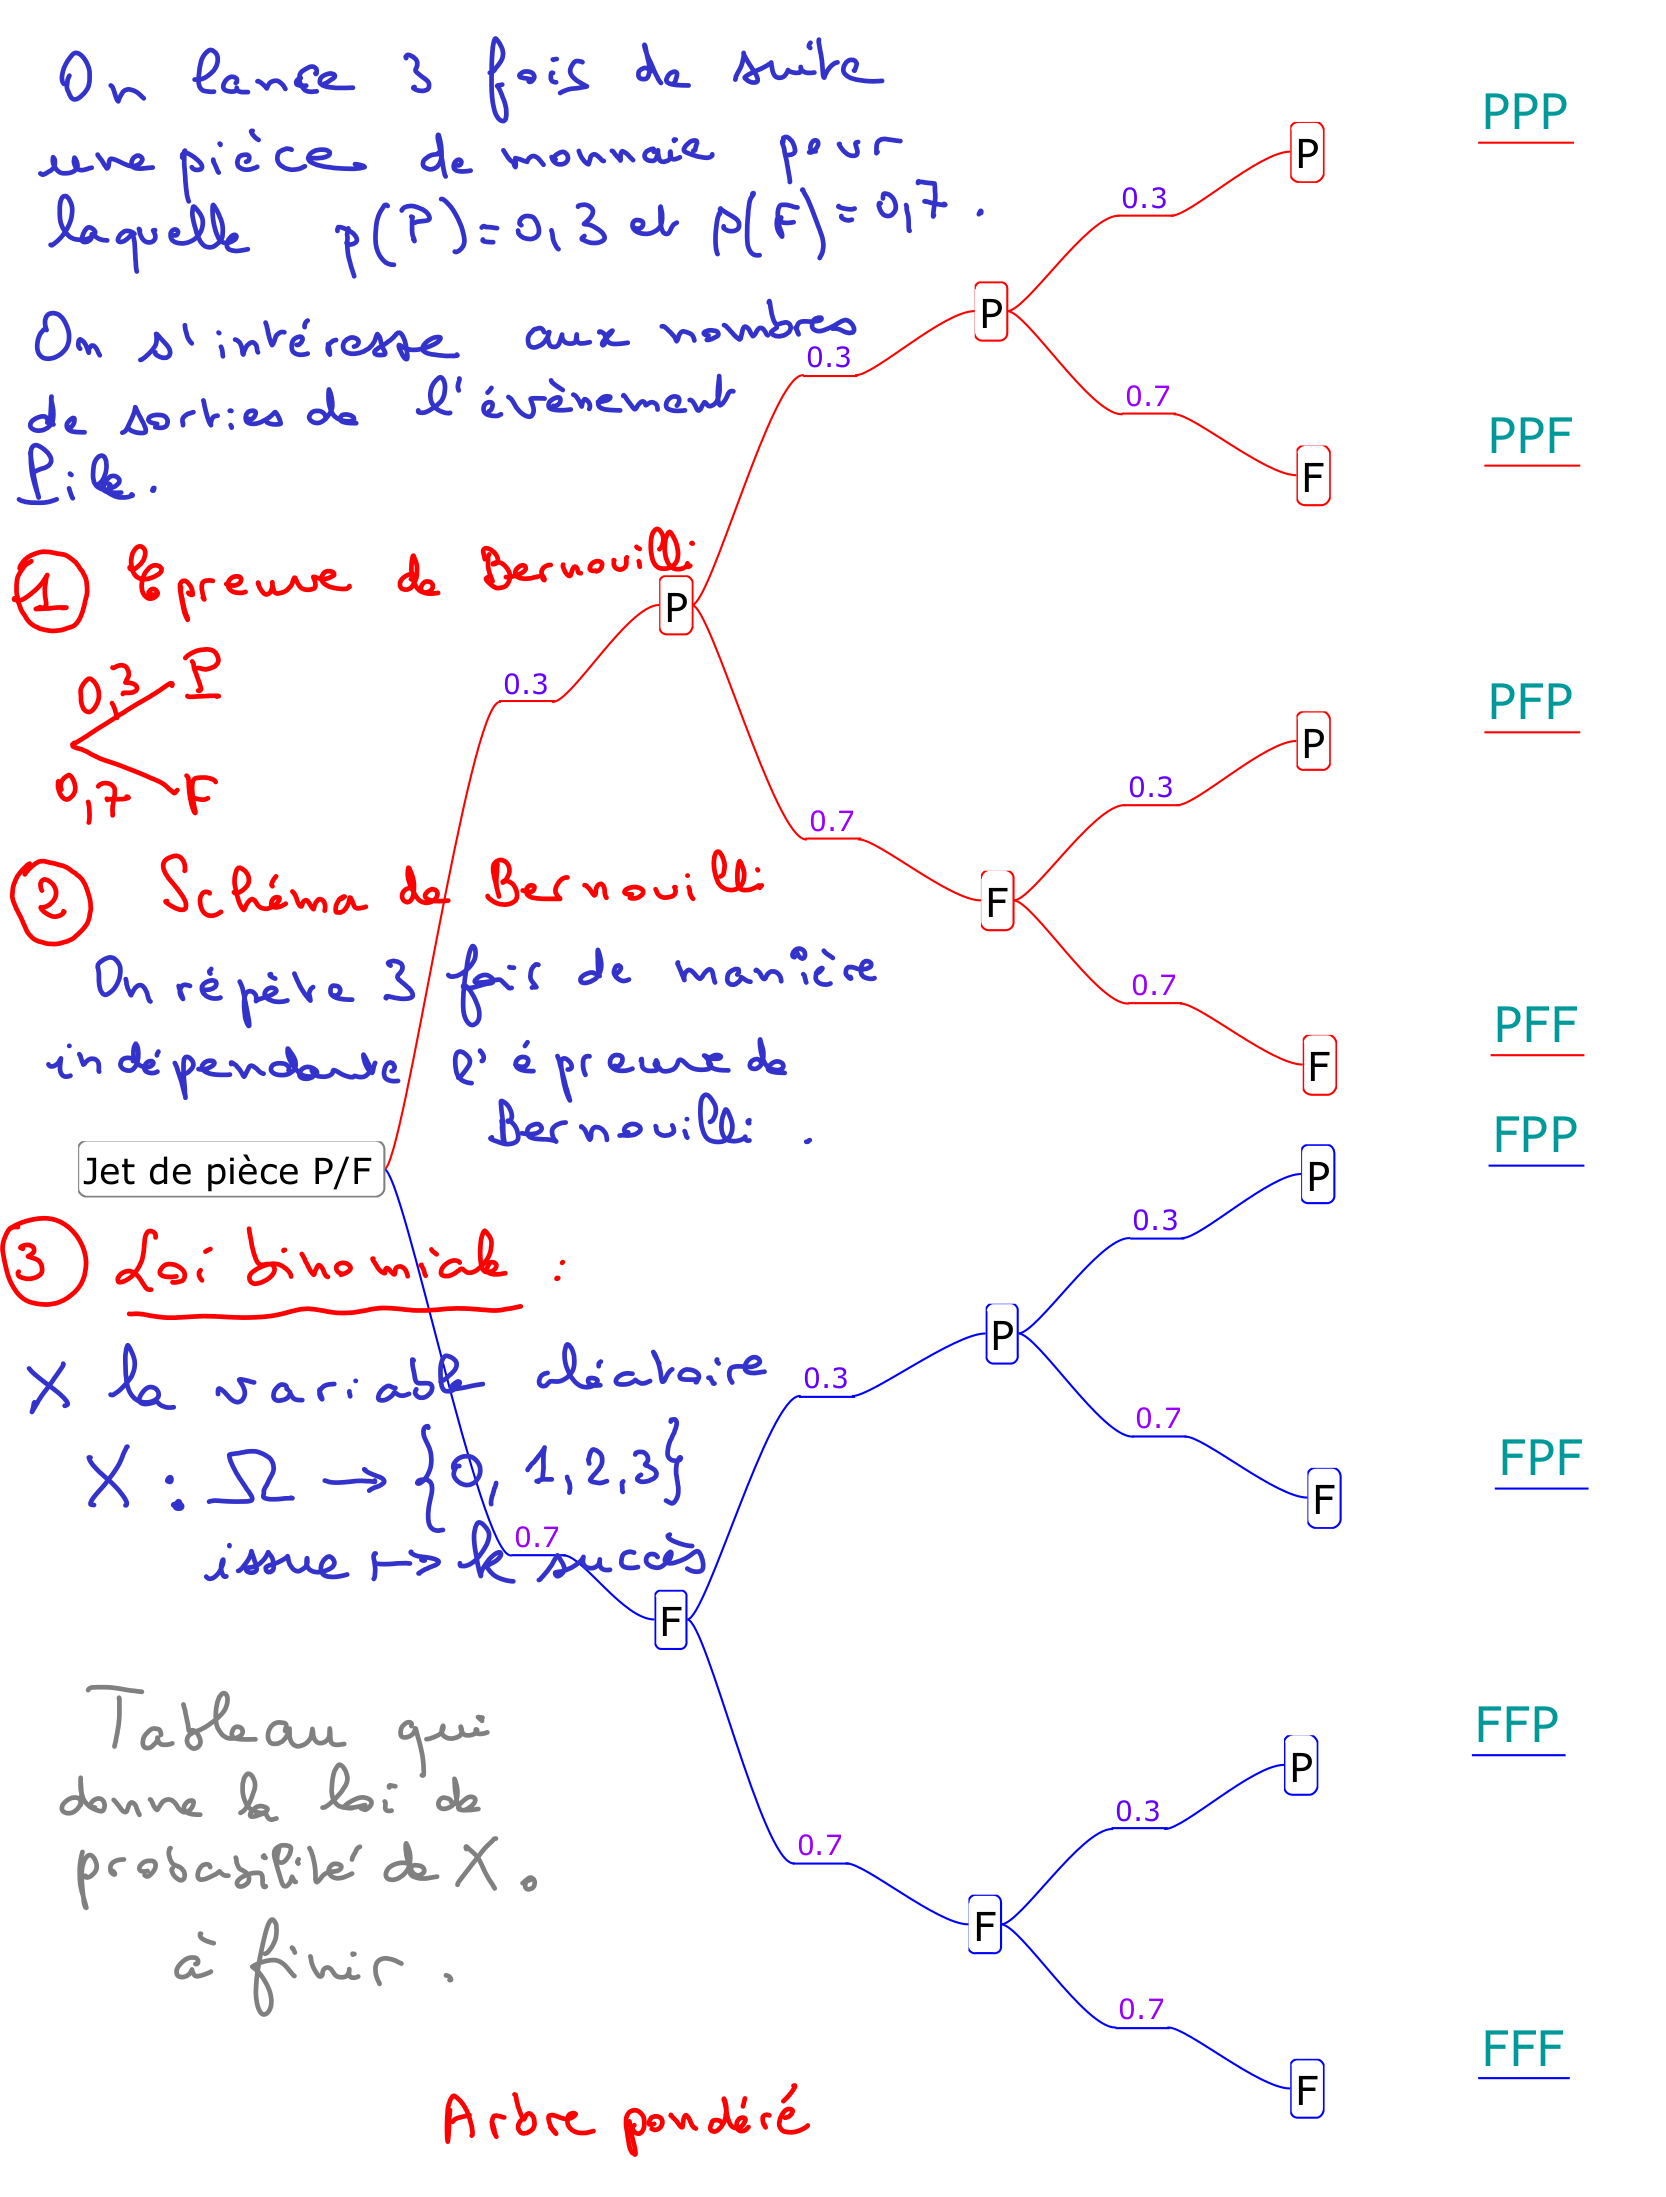 On lance 3 fois de suite
une pièce de monnaie pour
laquelle p(P)=0,3 et p(F)=0,7.
On s'intéresse aux nombres
de sorties de l'évènement
Pile.
1 Epreuve de Bernouilli
0,3 P
0,7 F
2 Schéma de Bernouilli
On répète 3 fois de manière
indépendante l'épreuve de
Bernouilli.
Jet de pièce P/F
3 Loi binomiale :
X la variable aléatoire
X : Ω → {0, 1, 2, 3}
issue ↦ k succès
Tableau qui
donne la loi de
probabilité de X.
à finir.
Arbre pondéré
0.3 P
0.3 P
0.3 P PPP
0.7 F PPF
0.7 F
0.3 P PFP
0.7 F PFF
0.7 F
0.3 P
0.3 P FPP
0.7 F FPF
0.7 F
0.3 P FFP
0.7 F FFF